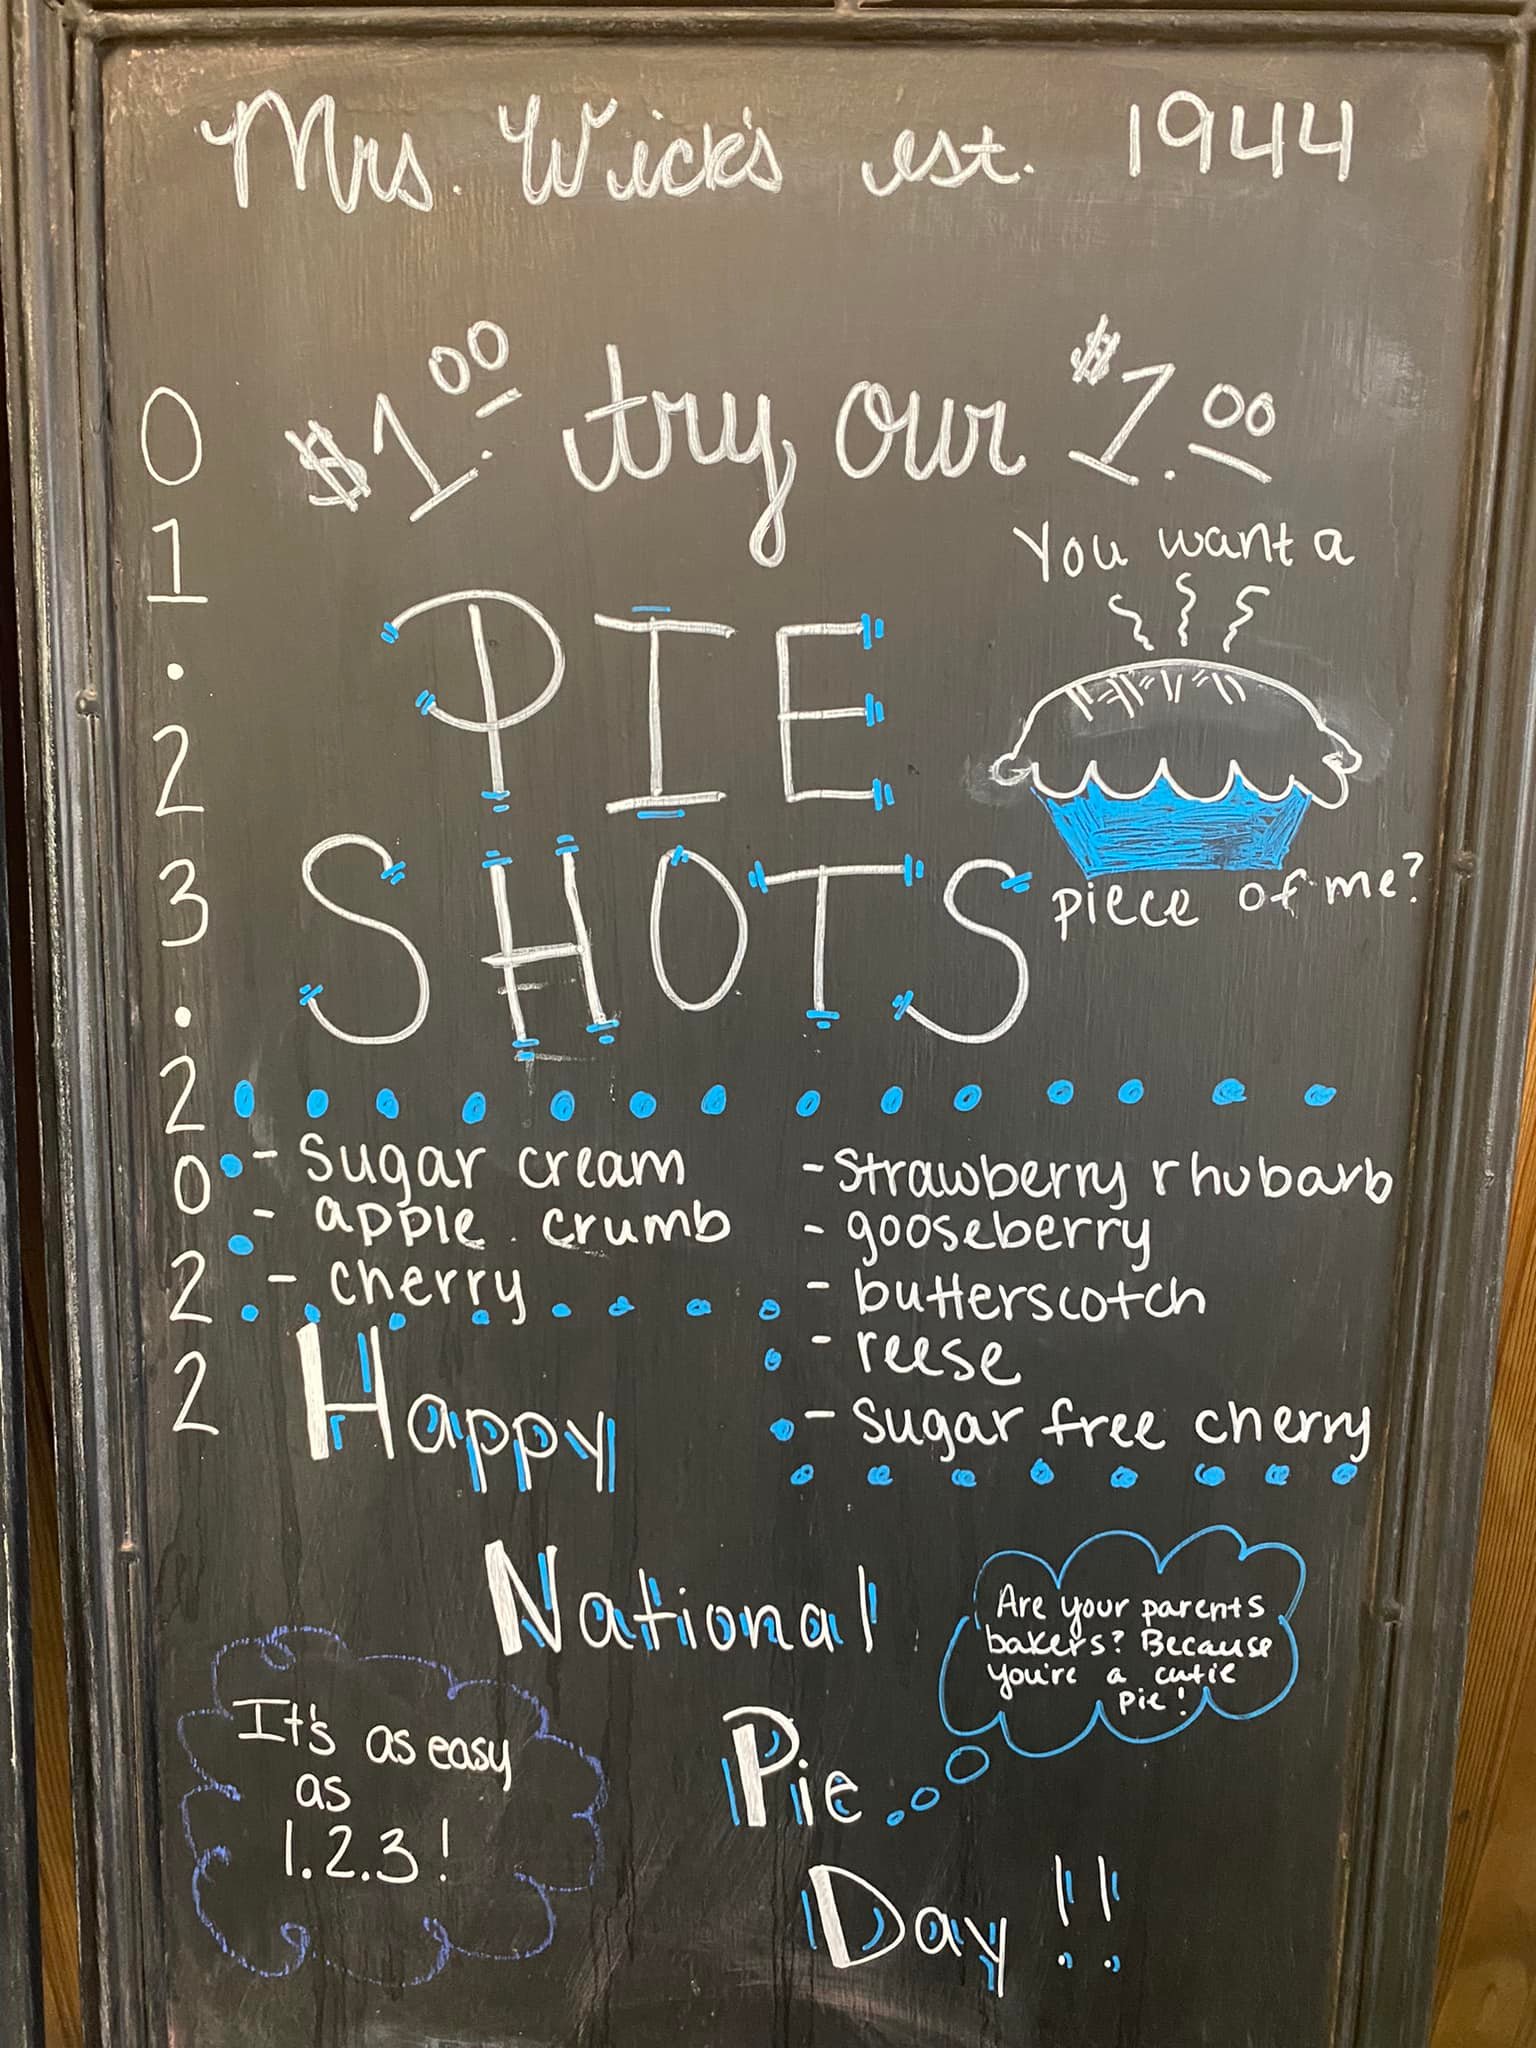 Mrs. Wick's est. 1944
$1.00 try our $1.00
PIE
SHOTS
You want a
piece of me?
0
1
.
2
3
.
2
0
2
2
- sugar cream
- apple crumb
- cherry
- strawberry rhubarb
- gooseberry
- butterscotch
- reese
- sugar free cherry
Happy
National
Pie
Day !!
Are your parents
bakers? Because
you're a cutie
pie!
It's as easy
as
1.2.3!